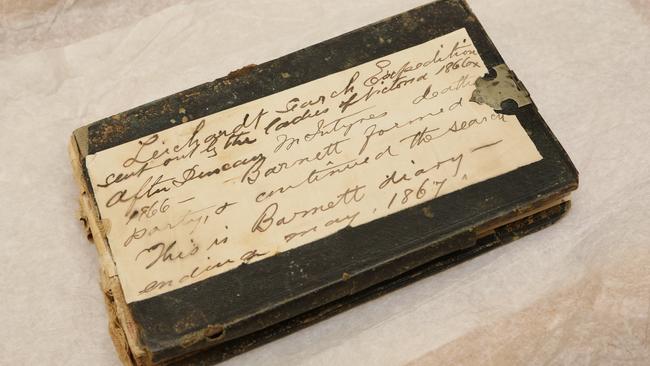 Leichardt Search Expedition
sent out by the ladies of Victoria 1866
After Duncan McIntyres death
1866 — Barnett formed a
party, & continued the search
This is Barnett diary —
ending May. 1867.